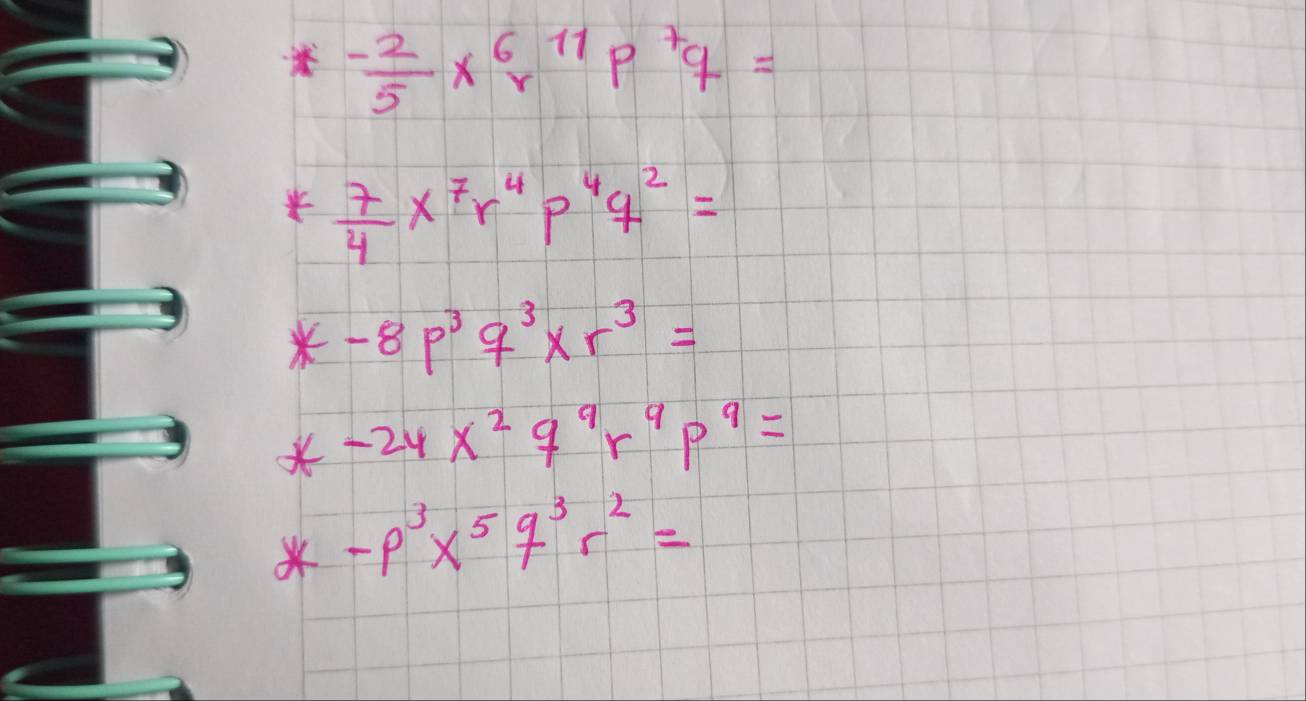 * -2/5 x⁶ r¹¹ p⁷ q =
* 7/4 x⁷ r⁴ p⁴ q² =
* -8 p³ q³ x r³ =
* -24 x² q⁹ r⁹ p⁹ =
* -p³ x⁵ q³ r² =